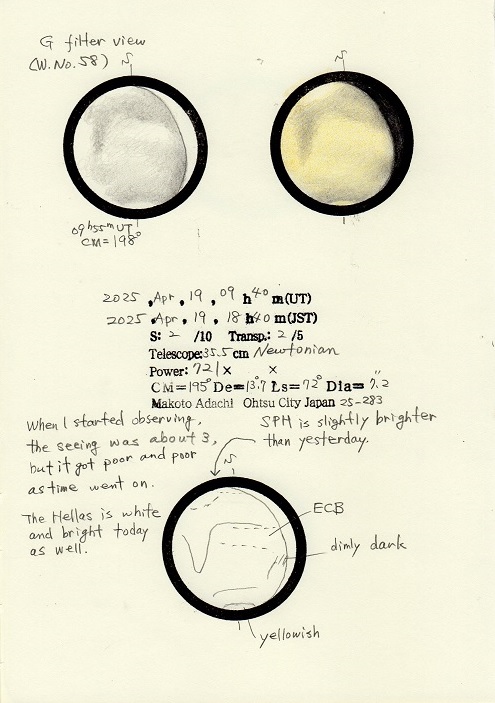 G filter view
(W.No.58)
N
N
09h55mUT
CM=198°
2025, Apr, 19, 09 h 40 m(UT)
2025, Apr, 19, 18 h 40 m(JST)
S: 2 /10 Transp.: 2 /5
Telescope:35.5cm Newtonian
Power: 721× ×
CM=195° De=13.7 Ls=72° Dia= 7.2"
Makoto Adachi Ohtsu City Japan 25-283
When I started observing,
the seeing was about 3,
but it got poor and poor
as time went on.
SPH is slightly brighter
than yesterday.
The Hellas is white
and bright today
as well.
N
ECB
dimly dark
yellowish